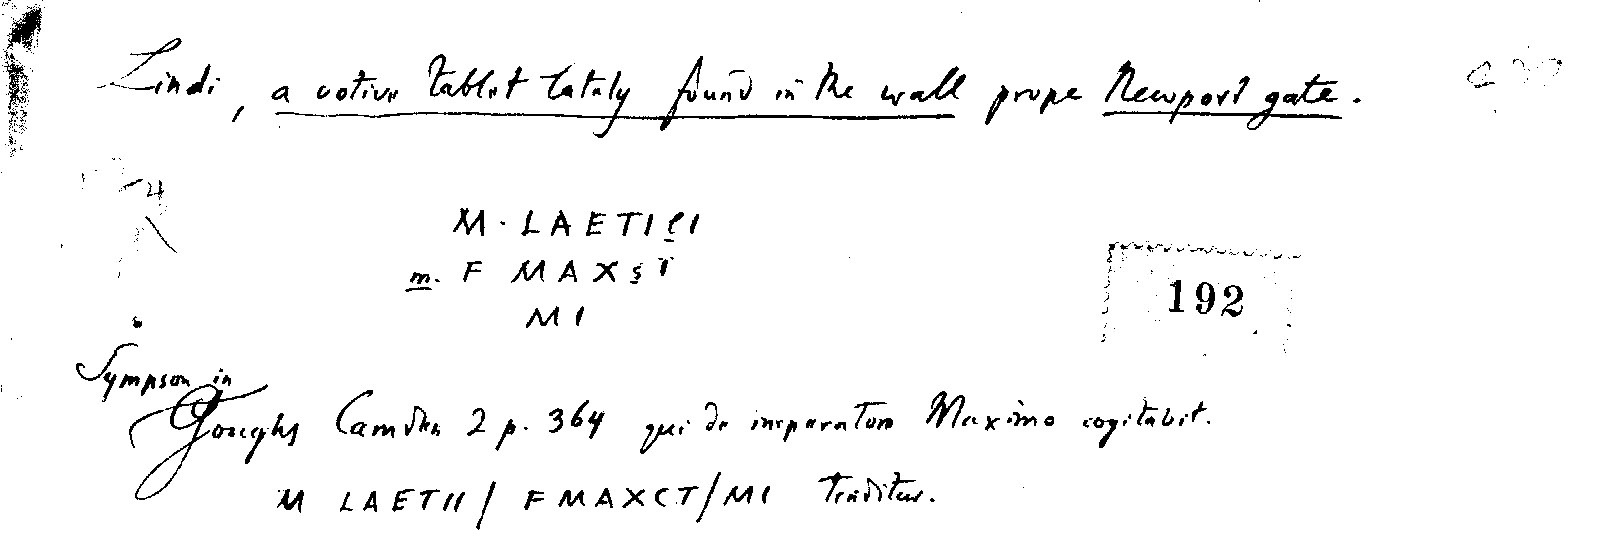 Lindi, a votive tablet lately found in the wall prope Newport gate.
M. LAETIlI
m. F MAXsT
MI
192
Sympson in
Goughs Camden 2 p. 364 qui de imperatore Maximo cogitabit.
M LAETII / F MAXCT / MI traditur.